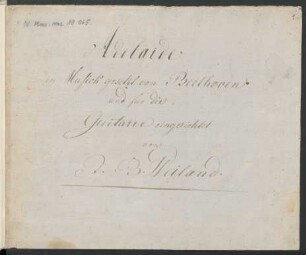 Adelaide
in Musick gesetzt von Beethoven
und für die
Guitarre eingerichtet
von
J. B. Weiland.